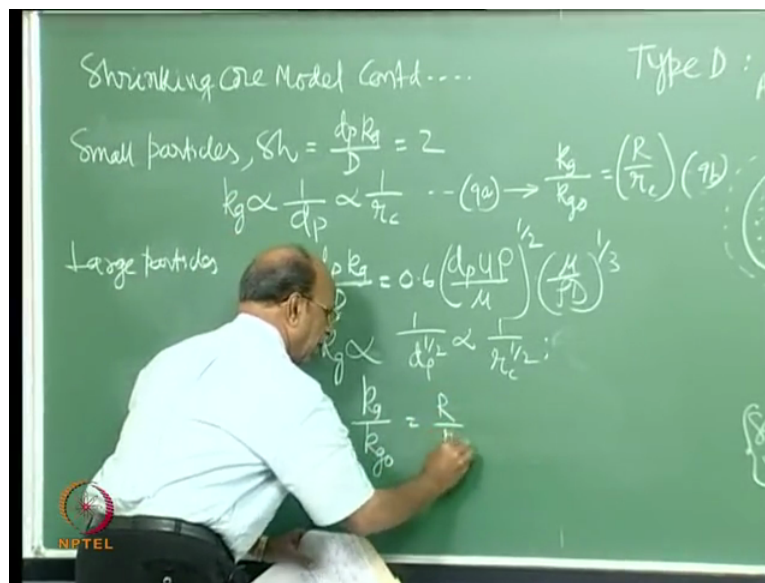 Shrinking Core Model Contd....
Type D :
Small particles, Sh = dp kg / D = 2
kg ∝ 1/dp ∝ 1/rc -- (9a) → kg/kg0 = (R/rc) (9b)
Large particles dp kg / D = 0.6 (dp u ρ / μ)^1/2 (μ / ρD)^1/3
kg ∝ 1/dp^1/2 ∝ 1/rc^1/2 ;
kg/kg0 = R/
NPTEL